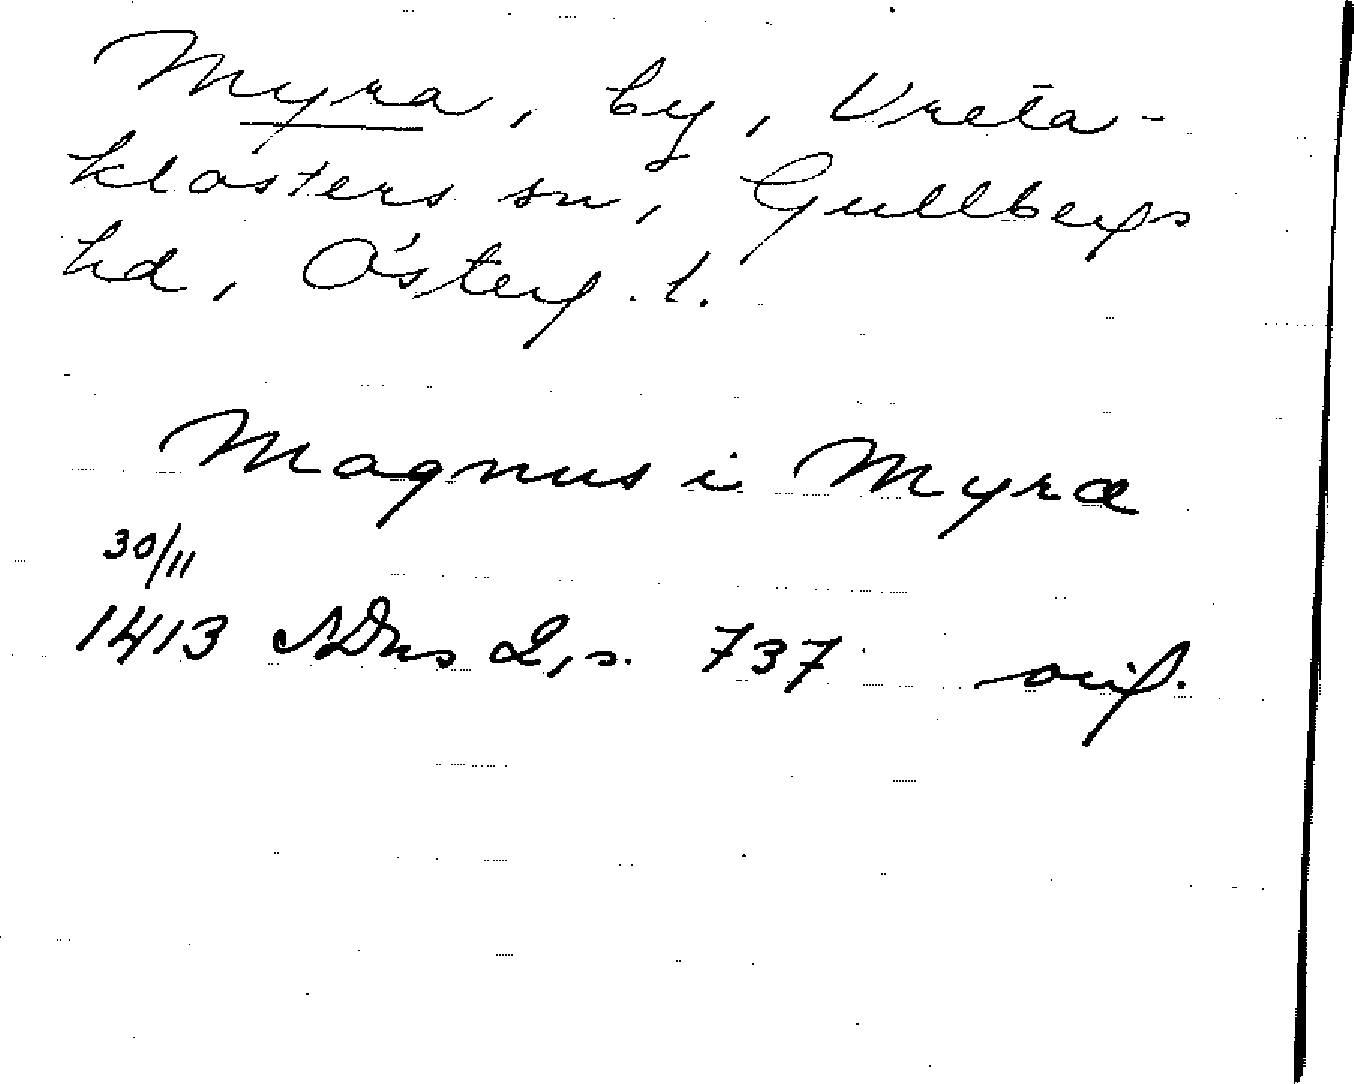 Myra, by, Vreta-
klosters sn, Gullbergs
hd, Österg. l.
Magnus i Myræ
30/11
1413 SDns 2, s. 737 orig.